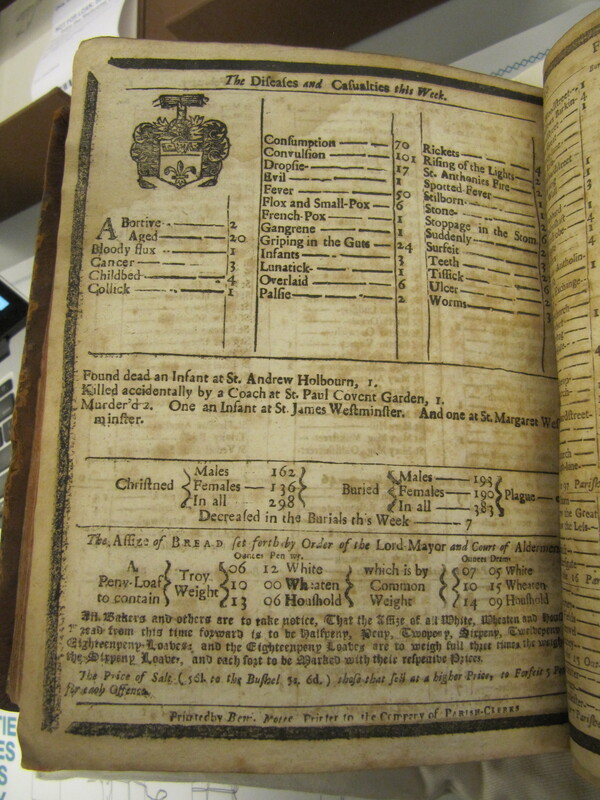 The Diseases and Casualties this Week.
ABortive 2
Aged 20
Bloody flux 1
Cancer 3
Childbed 4
Collick 1
Consumption 70
Convulsion 101
Dropsie 17
Evil 1
Fever 50
Flox and Small-Pox 6
French-Pox 1
Gangrene 1
Griping in the Guts 24
Infants 3
Lunatick 1
Overlaid 6
Palsie 2
Rickets
Rising of the Lights
St. Anthonies Fire
Spotted Fever
Stilborn
Stone
Stoppage in the Stom
Suddenly
Surfeit
Teeth
Tissick
Ulcer
Worms
Found dead an Infant at St. Andrew Holbourn, 1.
Killed accidentally by a Coach at St. Paul Covent Garden, 1.
Murder'd 2. One an Infant at St. James Westminster. And one at St. Margaret West
minster.
Christned Males 162 Females 136 In all 298
Buried Males 193 Females 190 In all 383 Plague
Decreased in the Burials this Week 7
The Assize of BREAD set forth by Order of the Lord-Mayor and Court of Aldermen
Ounces Pen w. Ounces Dram
A Peny-Loaf to contain Troy Weight 06 12 White 10 00 Wheaten 13 06 Houshold which is by Common Weight 07 05 White 10 15 Wheaten 14 09 Houshold
All Bakers and others are to take notice, That the Assize of all White, Wheaten and Houshold
read from this time forward is to be Halfpeny, Peny, Twopeny, Sixpeny, Twelvepeny
Eighteenpeny-Loaves; and the Eighteenpeny Loaves are to weigh full three times the weight
the Sixpeny Loaves, and each sort to be Marked with their respective Prices.
The Price of Salt (56l. to the Bushel 5s. 6d.) those that sell at a higher Price, to Forfeit 5
for each Offence.
Printed by Benj. Motte Printer to the Company of PARISH-CLERKS